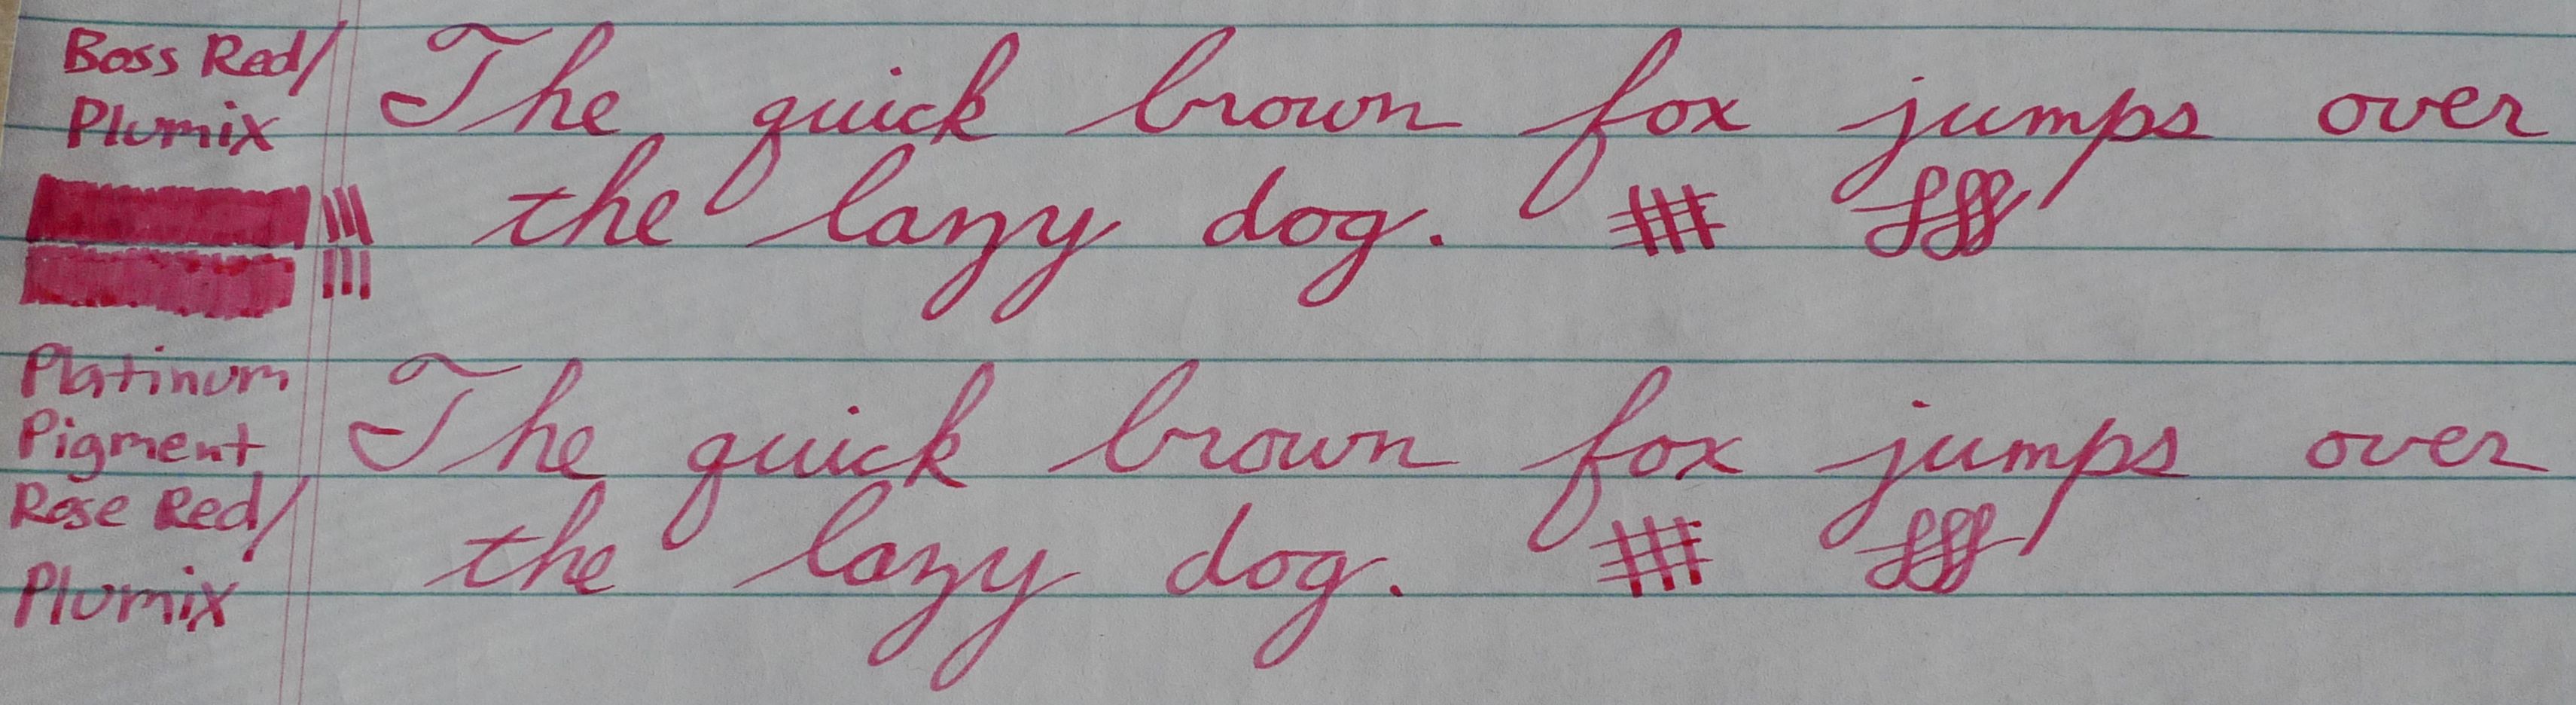 Boss Red/
Plumix
The quick brown fox jumps over
the lazy dog.
Platinum
Pigment
Rose Red/
Plumix
The quick brown fox jumps over
the lazy dog.